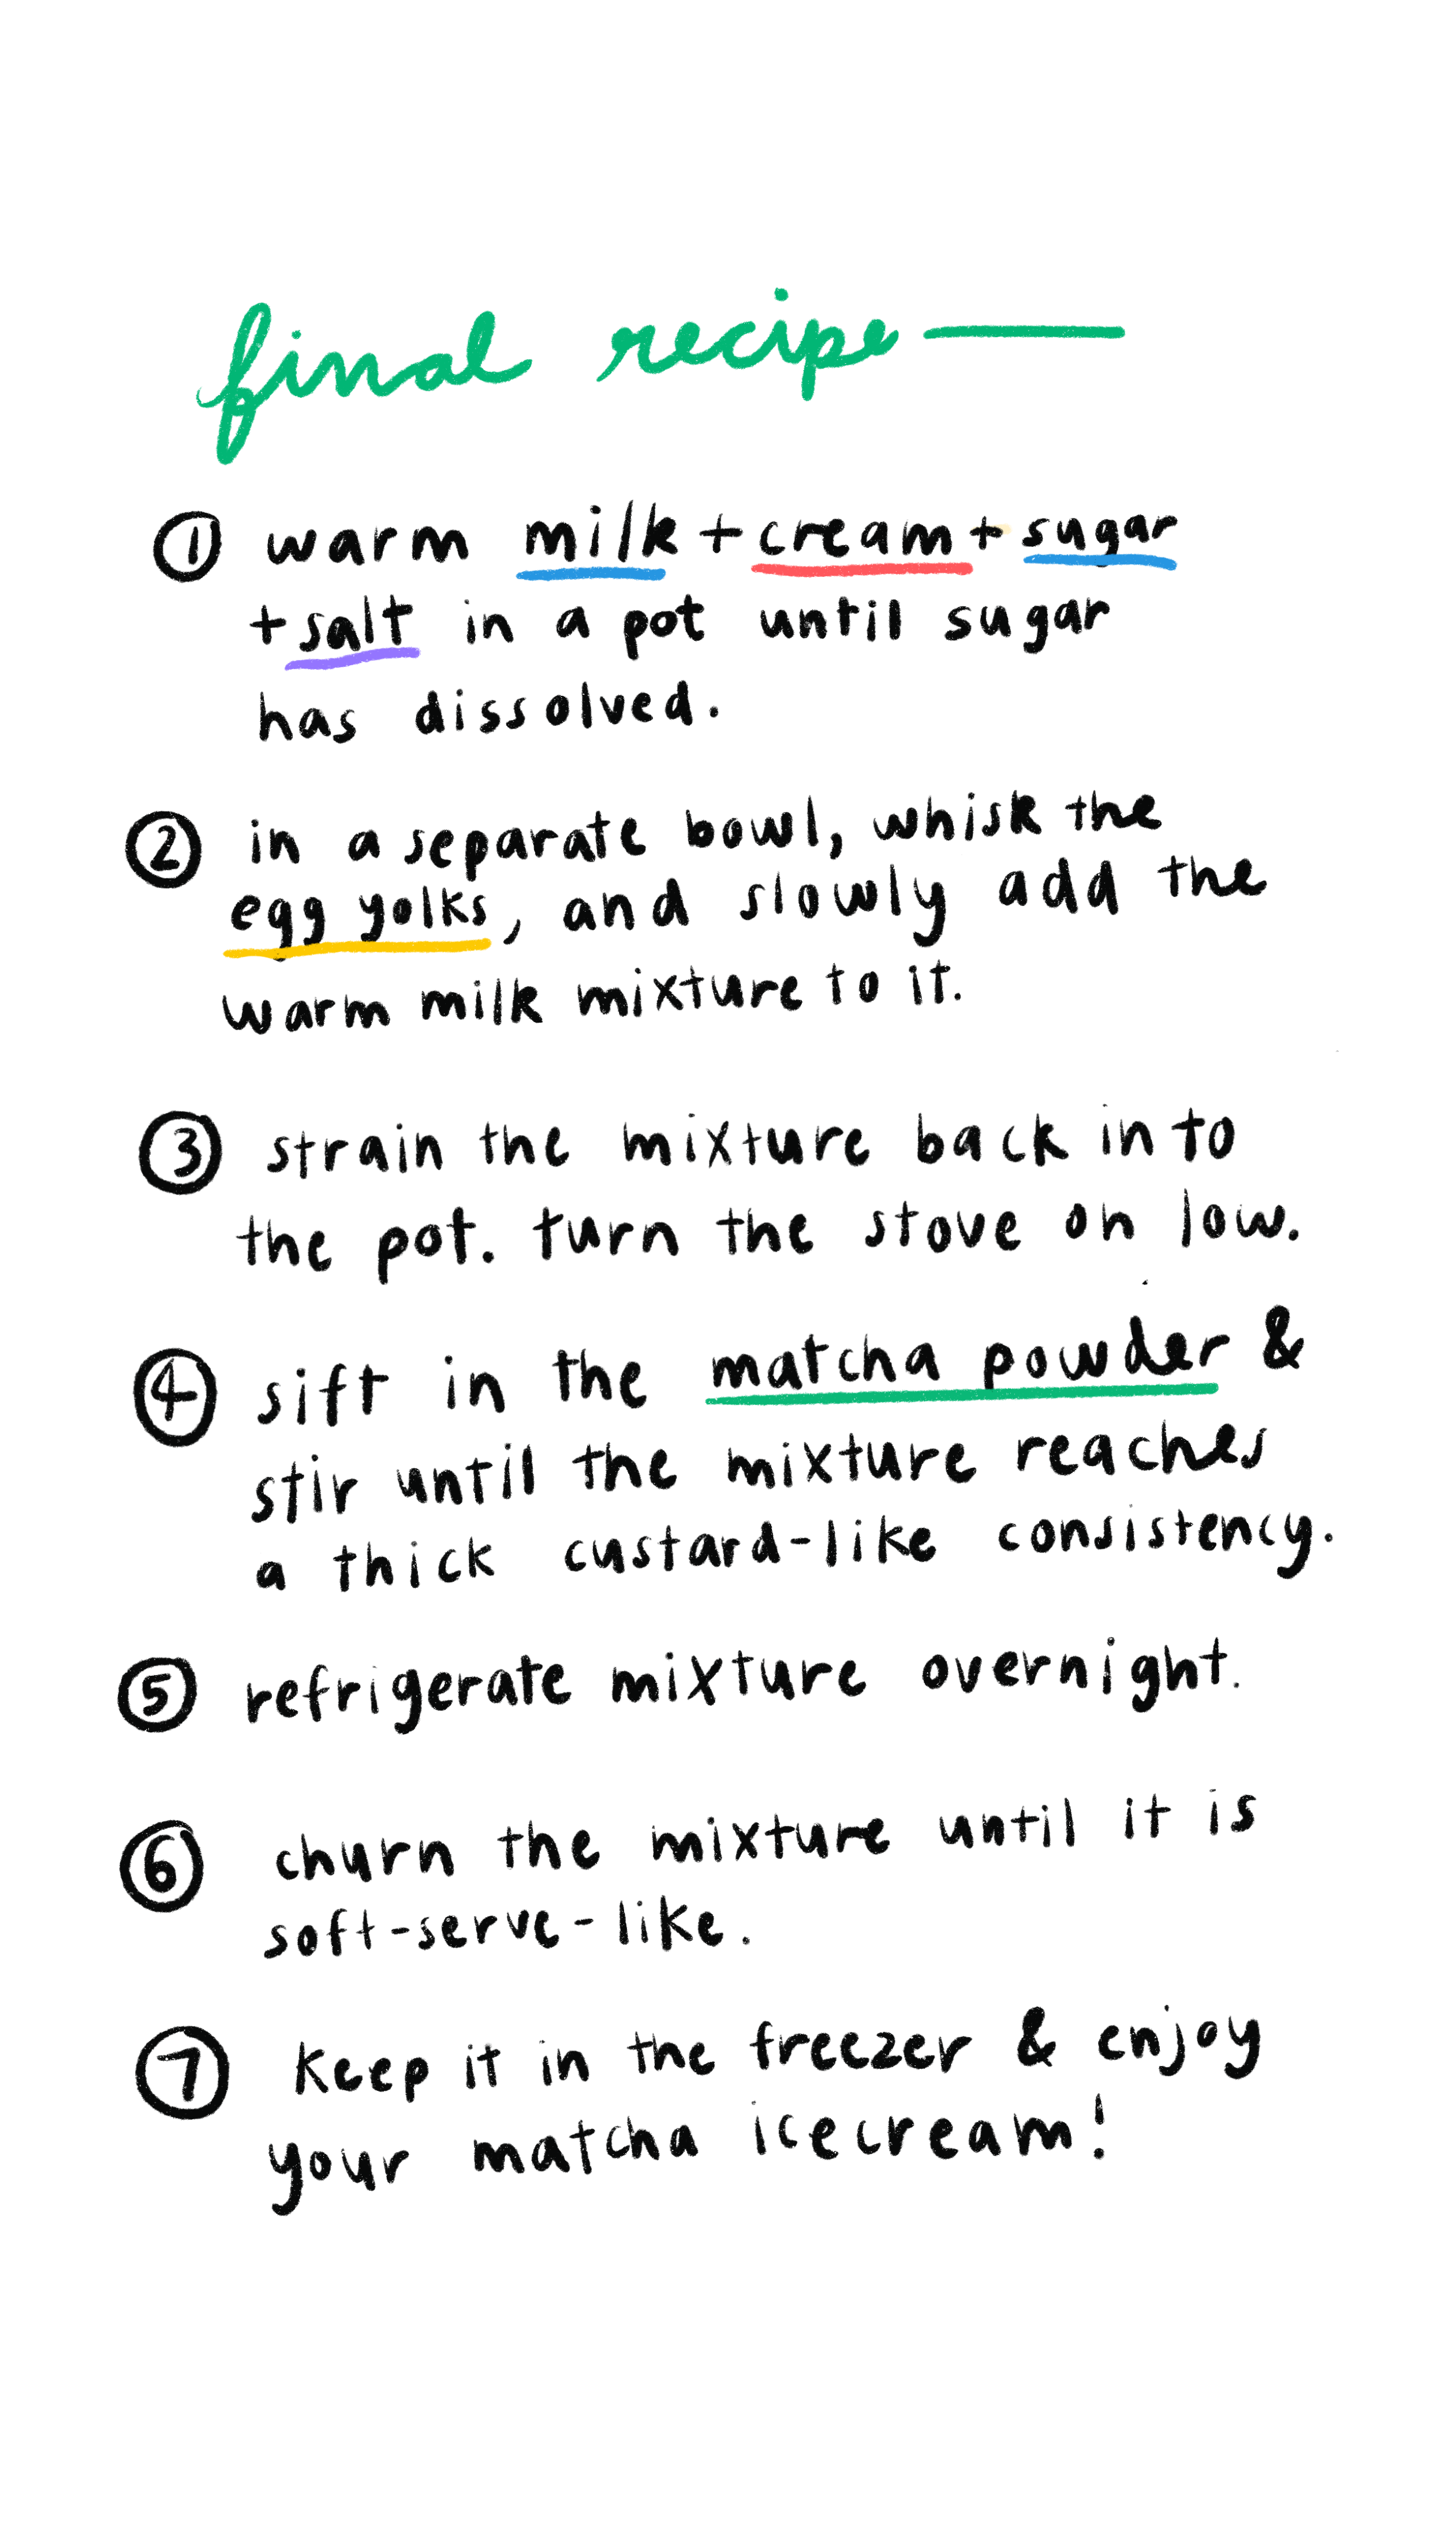 final recipe —
① warm milk + cream + sugar
+ salt in a pot until sugar
has dissolved.
② in a separate bowl, whisk the
egg yolks, and slowly add the
warm milk mixture to it.
③ strain the mixture back into
the pot. turn the stove on low.
④ sift in the matcha powder &
stir until the mixture reaches
a thick custard-like consistency.
⑤ refrigerate mixture overnight.
⑥ churn the mixture until it is
soft-serve-like.
⑦ keep it in the freezer & enjoy
your matcha icecream!